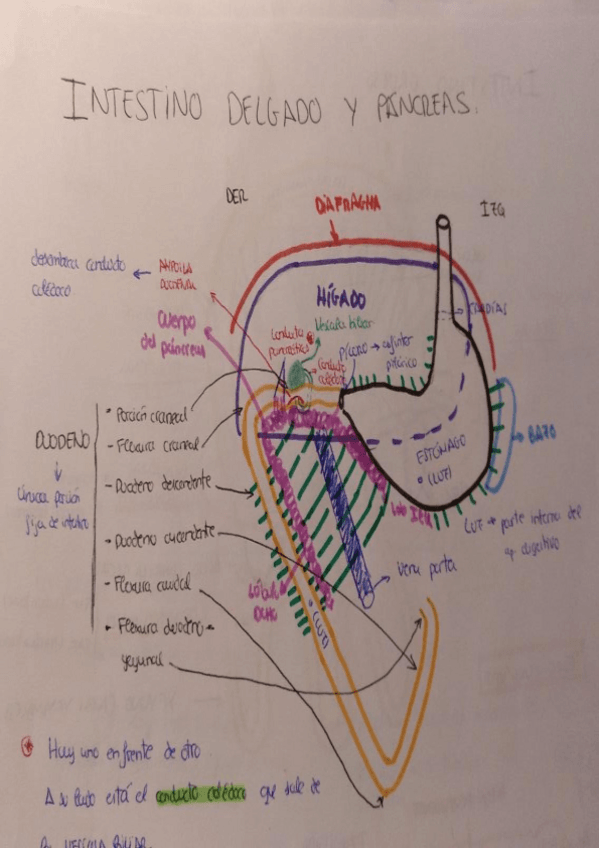 INTESTINO DELGADO Y PÁNCREAS.
DER
DIAFRAGMA
IZQ
desemboca conducto
colédoco
AMPOLLA
DUODENAL
HÍGADO
CARDIAS
Vesícula biliar
Conducto
pancreático
Cuerpo
del páncreas
Conducto
colédoco
PÍLORO → esfínter
pilórico
DUODENO
Única porción
fija de intestino
• Porción craneal
- Flexura craneal
- Duodeno descendente
• Duodeno ascendente
- Flexura caudal
• Flexura duodeno-
yeyunal
ESTÓMAGO
• (LUZ)
BAZO
lob IZQ
LUZ → parte interna del
ap. digestivo
Vena porta
LÓBULO
DCHO
• (LUZ)
Hay uno enfrente de otro
A su lado está el conducto colédoco que sale de
la VESÍCULA BILIAR.